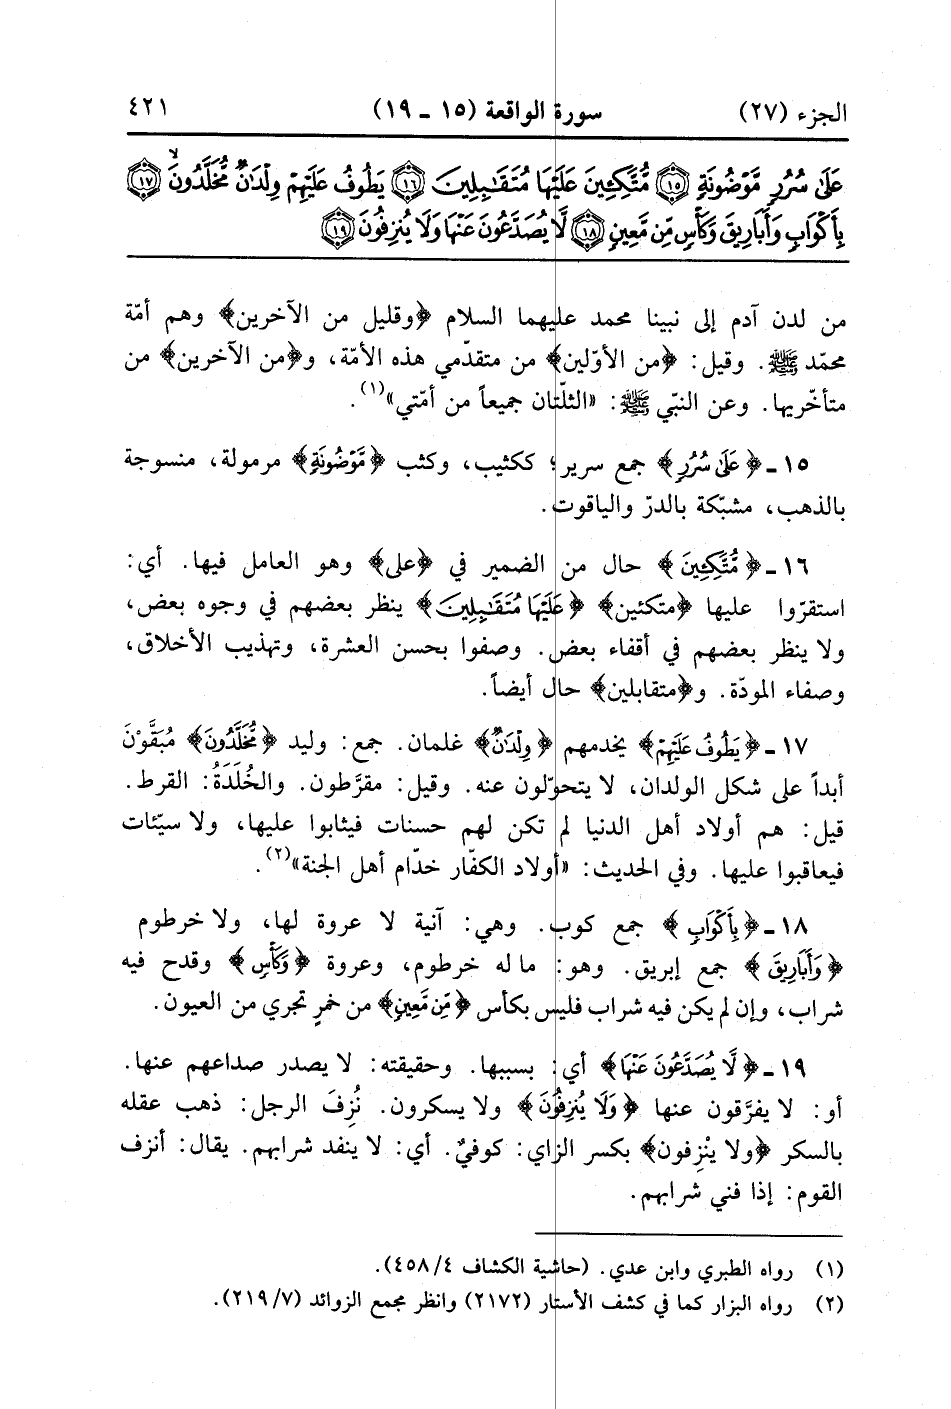 الجزء (٢٧) سورة الواقعة (١٥ ـ ١٩) ٤٢١
عَلَىٰ سُرُرٍ مَّوْضُونَةٍ ﴿١٥﴾ مُّتَّكِـِٔينَ عَلَيْهَا مُتَقَـٰبِلِينَ ﴿١٦﴾ يَطُوفُ عَلَيْهِمْ وِلْدَٰنٌ مُّخَلَّدُونَۙ ﴿١٧﴾
بِأَكْوَابٍ وَأَبَارِيقَ وَكَأْسٍ مِّن مَّعِينٍ ﴿١٨﴾ لَّا يُصَدَّعُونَ عَنْهَا وَلَا يُنزِفُونَ ﴿١٩﴾
من لدن آدم إلى نبينا محمد عليهما السلام ﴿وقليل من الآخرين﴾ وهم أمّة
محمّد ﷺ. وقيل: ﴿من الأوّلين﴾ من متقدّمي هذه الأمّة، و﴿من الآخرين﴾ من
متأخّريها. وعن النبّي ﷺ: «الثلّتان جميعاً من أمّتي»(١).
١٥ ـ ﴿عَلَىٰ سُرُرٍ﴾ جمع سرير؛ ككثيب، وكثب ﴿مَّوْضُونَةٍ﴾ مرمولة، منسوجة
بالذهب، مشبّكة بالدرّ والياقوت.
١٦ ـ ﴿مُّتَّكِـِٔينَ﴾ حال من الضمير في ﴿على﴾ وهو العامل فيها. أي:
استقرّوا عليها ﴿متكئين﴾ ﴿عَلَيْهَا مُتَقَـٰبِلِينَ﴾ ينظر بعضهم في وجوه بعض،
ولا ينظر بعضهم في أقفاء بعض. وصفوا بحسن العشرة، وتهذيب الأخلاق،
وصفاء المودّة. و﴿متقابلين﴾ حال أيضاً.
١٧ ـ ﴿يَطُوفُ عَلَيْهِمْ﴾ يخدمهم ﴿وِلْدَٰنٌ﴾ غلمان. جمع: وليد ﴿مُّخَلَّدُونَ﴾ مُبَقَّوْنَ
أبداً على شكل الولدان، لا يتحوّلون عنه. وقيل: مقرَّطون. والخُلَدَةُ: القرط.
قيل: هم أولاد أهل الدنيا لم تكن لهم حسنات فيثابوا عليها، ولا سيّئات
فيعاقبوا عليها. وفي الحديث: «أولاد الكفّار خدّام أهل الجنة»(٢).
١٨ ـ ﴿بِأَكْوَابٍ﴾ جمع كوب. وهي: آنية لا عروة لها، ولا خرطوم
﴿وَأَبَارِيقَ﴾ جمع إبريق. وهو: ما له خرطوم، وعروة ﴿وَكَأْسٍ﴾ وقدح فيه
شراب، وإن لم يكن فيه شراب فليس بكأس ﴿مِّن مَّعِينٍ﴾ من خمرٍ تجري من العيون.
١٩ ـ ﴿لَّا يُصَدَّعُونَ عَنْهَا﴾ أي: بسببها. وحقيقته: لا يصدر صداعهم عنها.
أو: لا يفرَّقون عنها ﴿وَلَا يُنزِفُونَ﴾ ولا يسكرون. نُزِفَ الرجل: ذهب عقله
بالسكر ﴿ولا يُنْزِفون﴾ بكسر الزاي: كوفيٌ. أي: لا ينفد شرابهم. يقال: أنزف
القوم: إذا فني شرابهم.
(١) رواه الطبري وابن عدي. (حاشية الكشاف ٤/٤٥٨).
(٢) رواه البزار كما في كشف الأستار (٢١٧٢) وانظر مجمع الزوائد (٢١٩/٧).